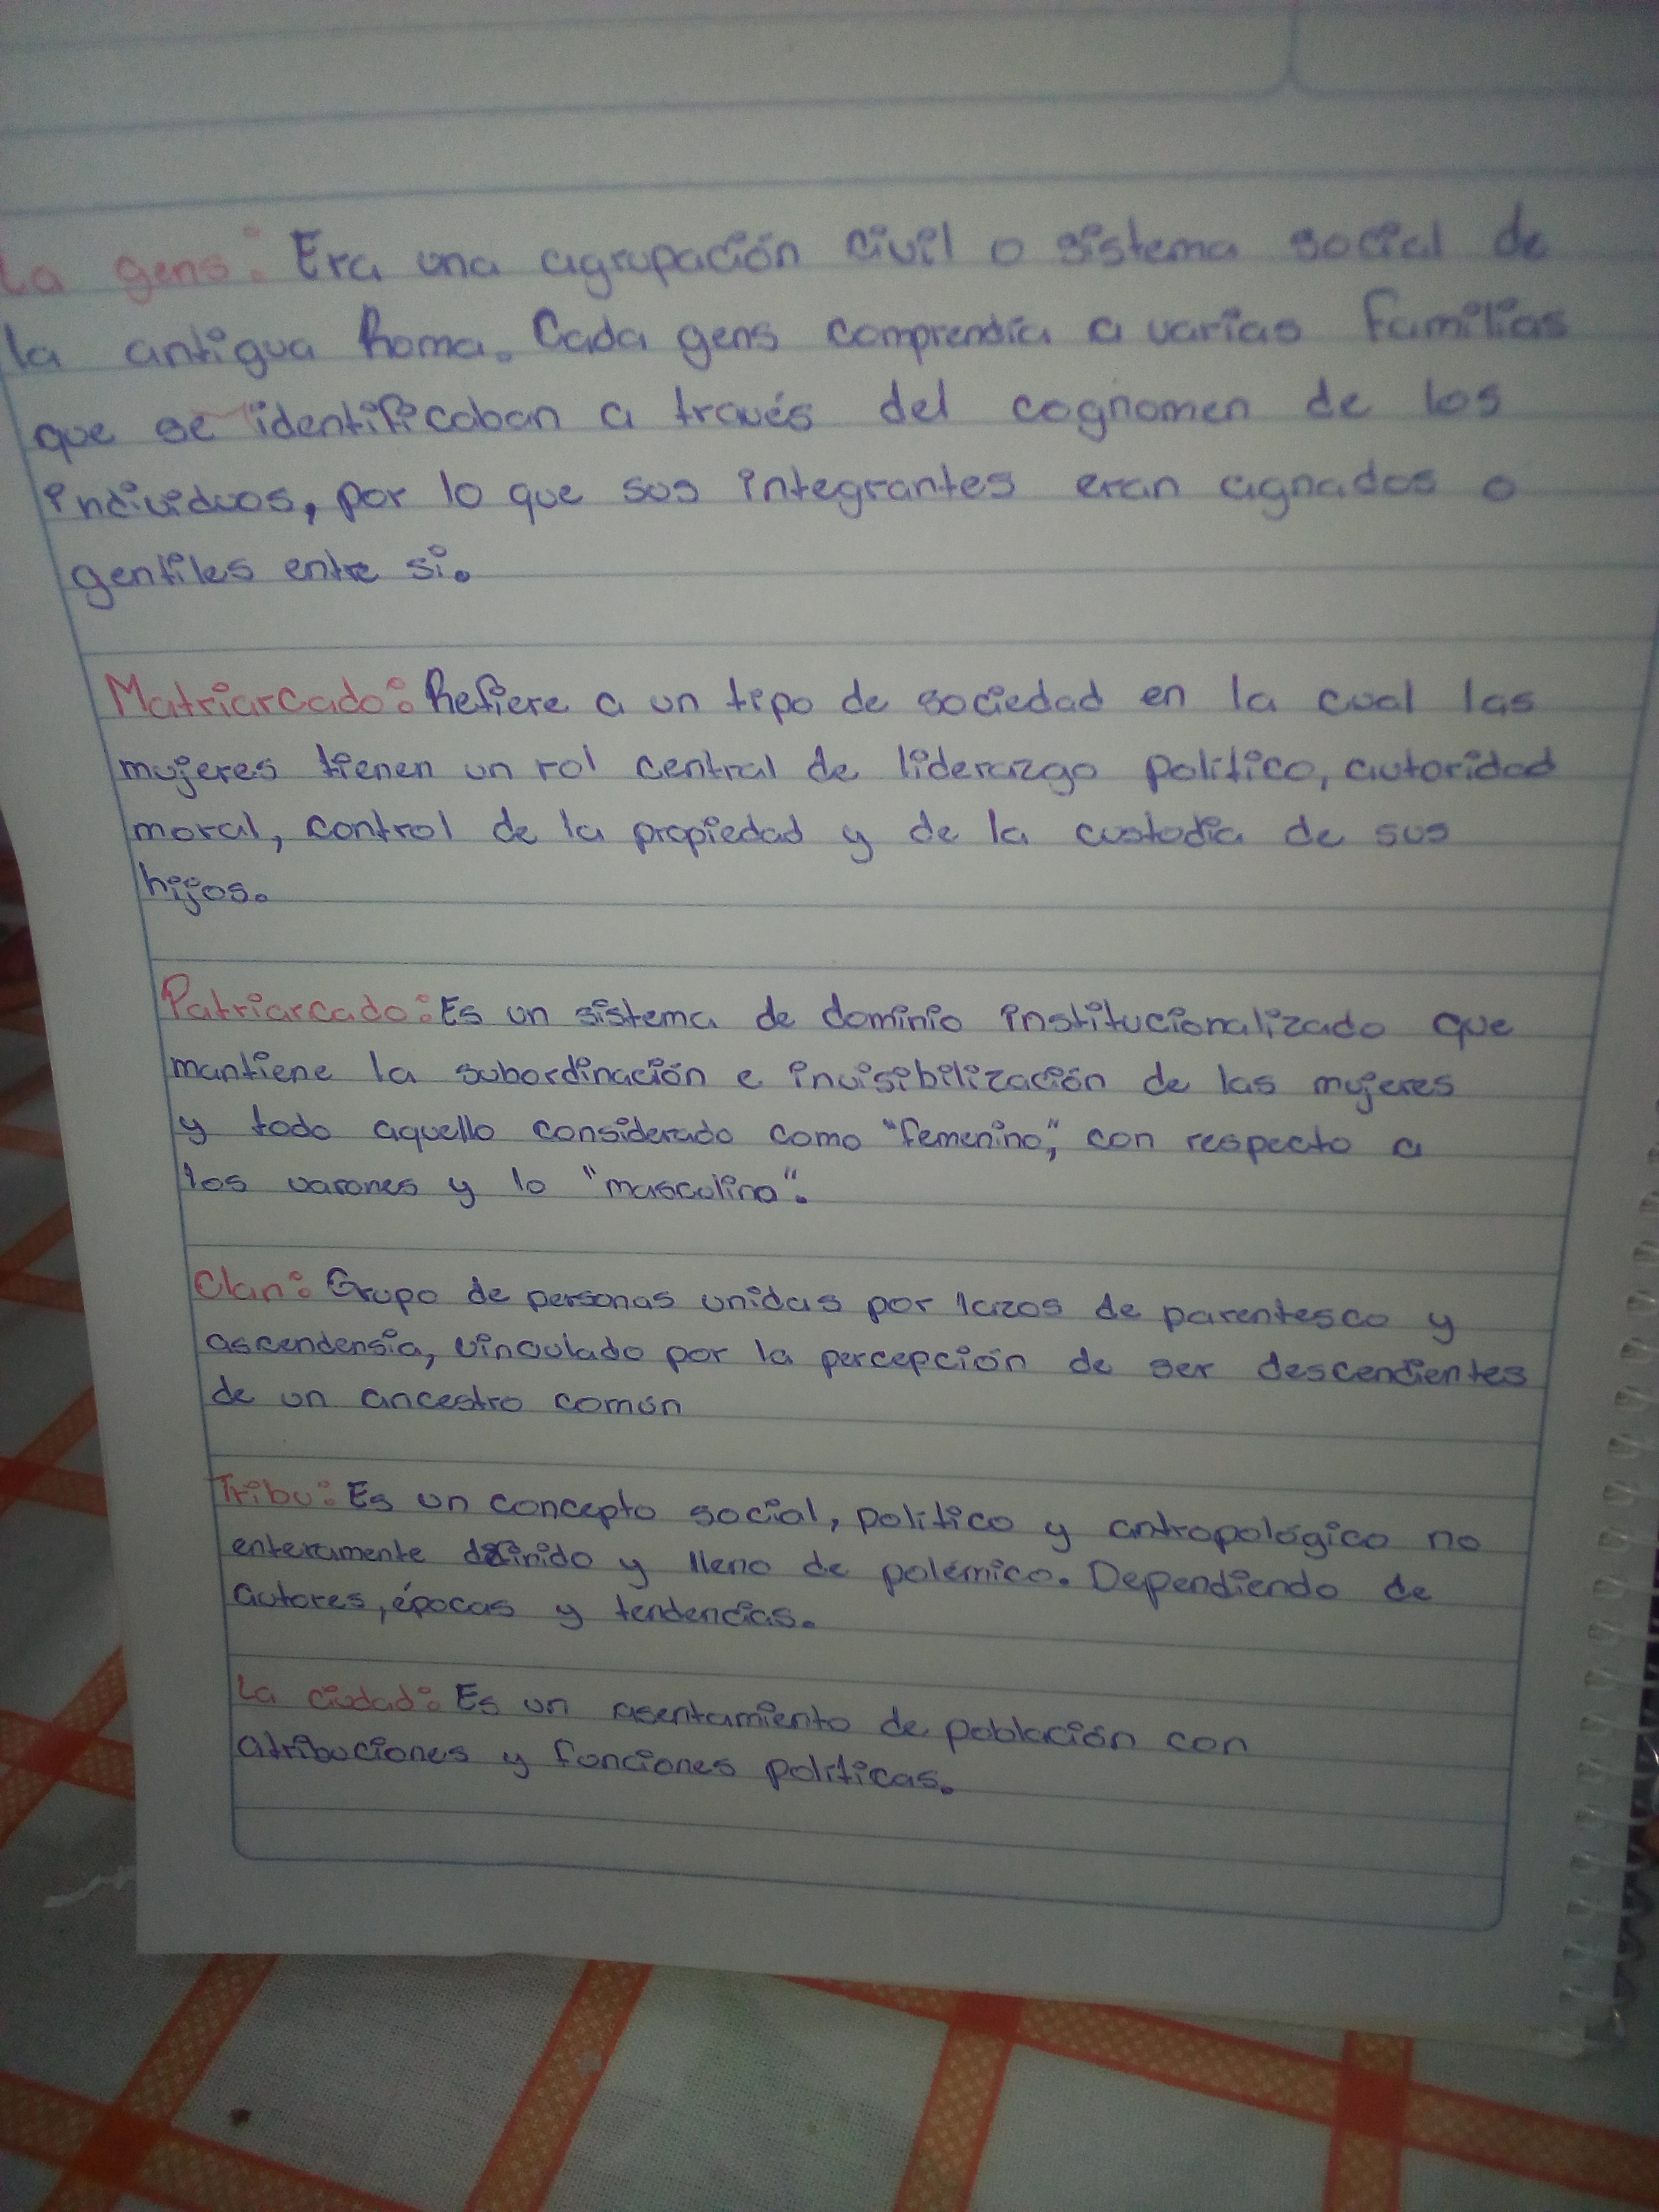 La gens: Era una agrupación civil o sistema social de
la antigua Roma. Cada gens comprendía a varias familias
que se identificaban a través del cognomen de los
individuos, por lo que sus integrantes eran agnados o
gentiles entre sí.
Matriarcado: Refiere a un tipo de sociedad en la cual las
mujeres tienen un rol central de liderazgo político, autoridad
moral, control de la propiedad y de la custodia de sus
hijos.
Patriarcado: Es un sistema de dominio institucionalizado que
mantiene la subordinación e invisibilización de las mujeres
y todo aquello considerado como "femenino", con respecto a
los varones y lo "masculino".
Clan: Grupo de personas unidas por lazos de parentesco y
ascendensia, vinculado por la percepción de ser descendientes
de un ancestro común
Tribu: Es un concepto social, político y antropológico no
enteramente definido y lleno de polémico. Dependiendo de
autores, épocas y tendencias.
La ciudad: Es un asentamiento de población con
atribuciones y funciones políticas.